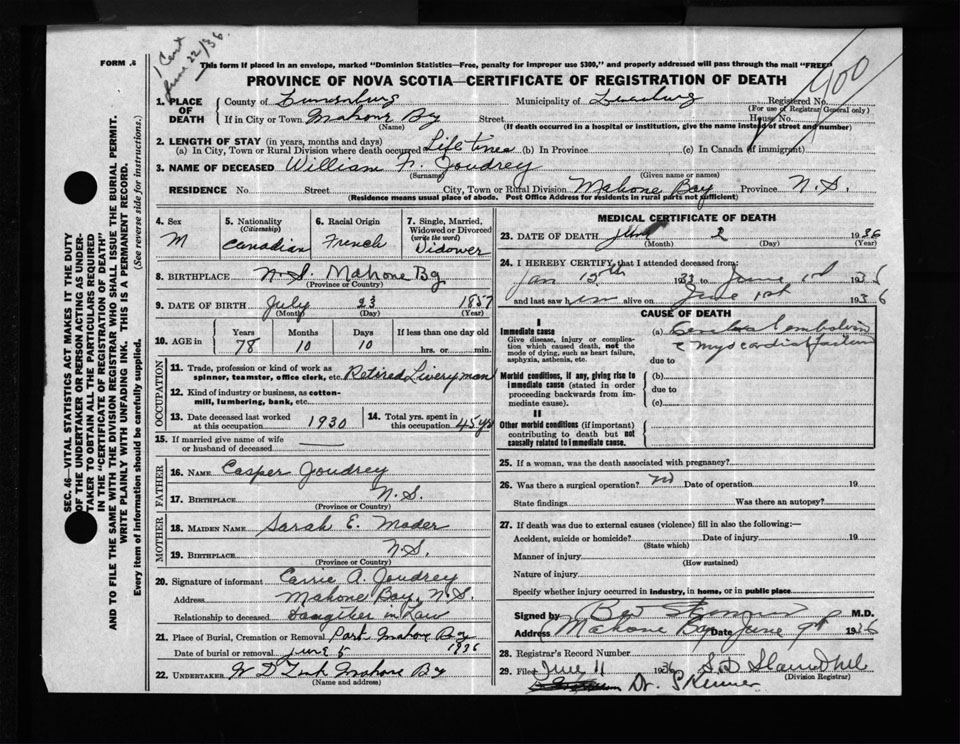 1 Cert
June 22/36
FORM
This form if placed in an envelope, marked "Dominion Statistics—Free, penalty for improper use $300," and properly addressed will pass through the mail "FREE"
PROVINCE OF NOVA SCOTIA—CERTIFICATE OF REGISTRATION OF DEATH
SEC. 46—VITAL STATISTICS ACT MAKES IT THE DUTY
OF THE UNDERTAKER OR PERSON ACTING AS UNDER-
TAKER TO OBTAIN ALL THE PARTICULARS REQUIRED
IN THE "CERTIFICATE OF REGISTRATION OF DEATH"
AND TO FILE THE SAME WITH THE DIVISION REGISTRAR WHO SHALL ISSUE THE BURIAL PERMIT.
WRITE PLAINLY WITH UNFADING INK. THIS IS A PERMANENT RECORD.
Every item of information should be carefully supplied. (See reverse side for instructions.)
1. PLACE OF DEATH County of Lunenburg Municipality of Lunenburg Registered No.
(For use of Registrar General only)
If in City or Town Mahone By Street House No.
(Name) (If death occurred in a hospital or institution, give the name instead of street and number)
2. LENGTH OF STAY (in years, months and days)
(a) In City, Town or Rural Division where death occurred Life time (b) In Province (c) In Canada (if immigrant)
3. NAME OF DECEASED William Joudrey
(Surname) (Given name or names)
RESIDENCE No Street City, Town or Rural Division Mahone Bay Province N.S.
(Residence means usual place of abode. Post Office Address for residents in rural parts not sufficient)
4. Sex M
5. Nationality (Citizenship) Canadian
6. Racial Origin French
7. Single, Married, Widowed or Divorced (write the word) Widower
8. BIRTHPLACE N.S. Mahone By
(Province or Country)
9. DATE OF BIRTH July 23 1857
(Month) (Day) (Year)
10. AGE in Years 78 Months 10 Days 10 If less than one day old hrs. or min.
OCCUPATION
11. Trade, profession or kind of work as spinner, teamster, office clerk, etc. Retired Liveryman
12. Kind of industry or business, as cotton-mill, lumbering, bank, etc.
13. Date deceased last worked at this occupation 1930
14. Total yrs. spent in this occupation 45 yrs
15. If married give name of wife or husband of deceased
FATHER
16. NAME Casper Joudrey
17. BIRTHPLACE N.S.
(Province or Country)
MOTHER
18. MAIDEN NAME Sarah E. Mader
19. BIRTHPLACE N.S.
(Province or Country)
20. Signature of informant Carrie A. Joudrey
Address Mahone Bay, N.S.
Relationship to deceased Daughter in Law
21. Place of Burial, Cremation or Removal Park Mahone By
Date of burial or removal June 5 1936
22. UNDERTAKER W D Zink Mahone By
(Name and address)
MEDICAL CERTIFICATE OF DEATH
23. DATE OF DEATH June 2 1936
(Month) (Day) (Year)
24. I HEREBY CERTIFY that I attended deceased from:
Jan 15th 1933 to June 1st 193
and last saw him alive on June 1st 1936
CAUSE OF DEATH
I
Immediate cause
Give disease, injury or complication which caused death, not the mode of dying, such as heart failure, asphyxia, asthenia, etc.
(a) embolism
myocardial failure
due to
Morbid conditions, if any, giving rise to immediate cause (stated in order proceeding backwards from immediate cause).
(b)
due to
(c)
II
Other morbid conditions (if important) contributing to death but not causally related to immediate cause.
25. If a woman, was the death associated with pregnancy?
26. Was there a surgical operation? no Date of operation 19
State findings Was there an autopsy?
27. If death was due to external causes (violence) fill in also the following:—
Accident, suicide or homicide? Date of injury 19
(State which)
Manner of injury
(How sustained)
Nature of injury
Specify whether injury occurred in industry, in home, or in public place
Signed by M.D.
Address Mahone Bay Date June 9th 1936
28. Registrar's Record Number
29. Filed June 11 1936
(Division Registrar)
Dr. Skinner